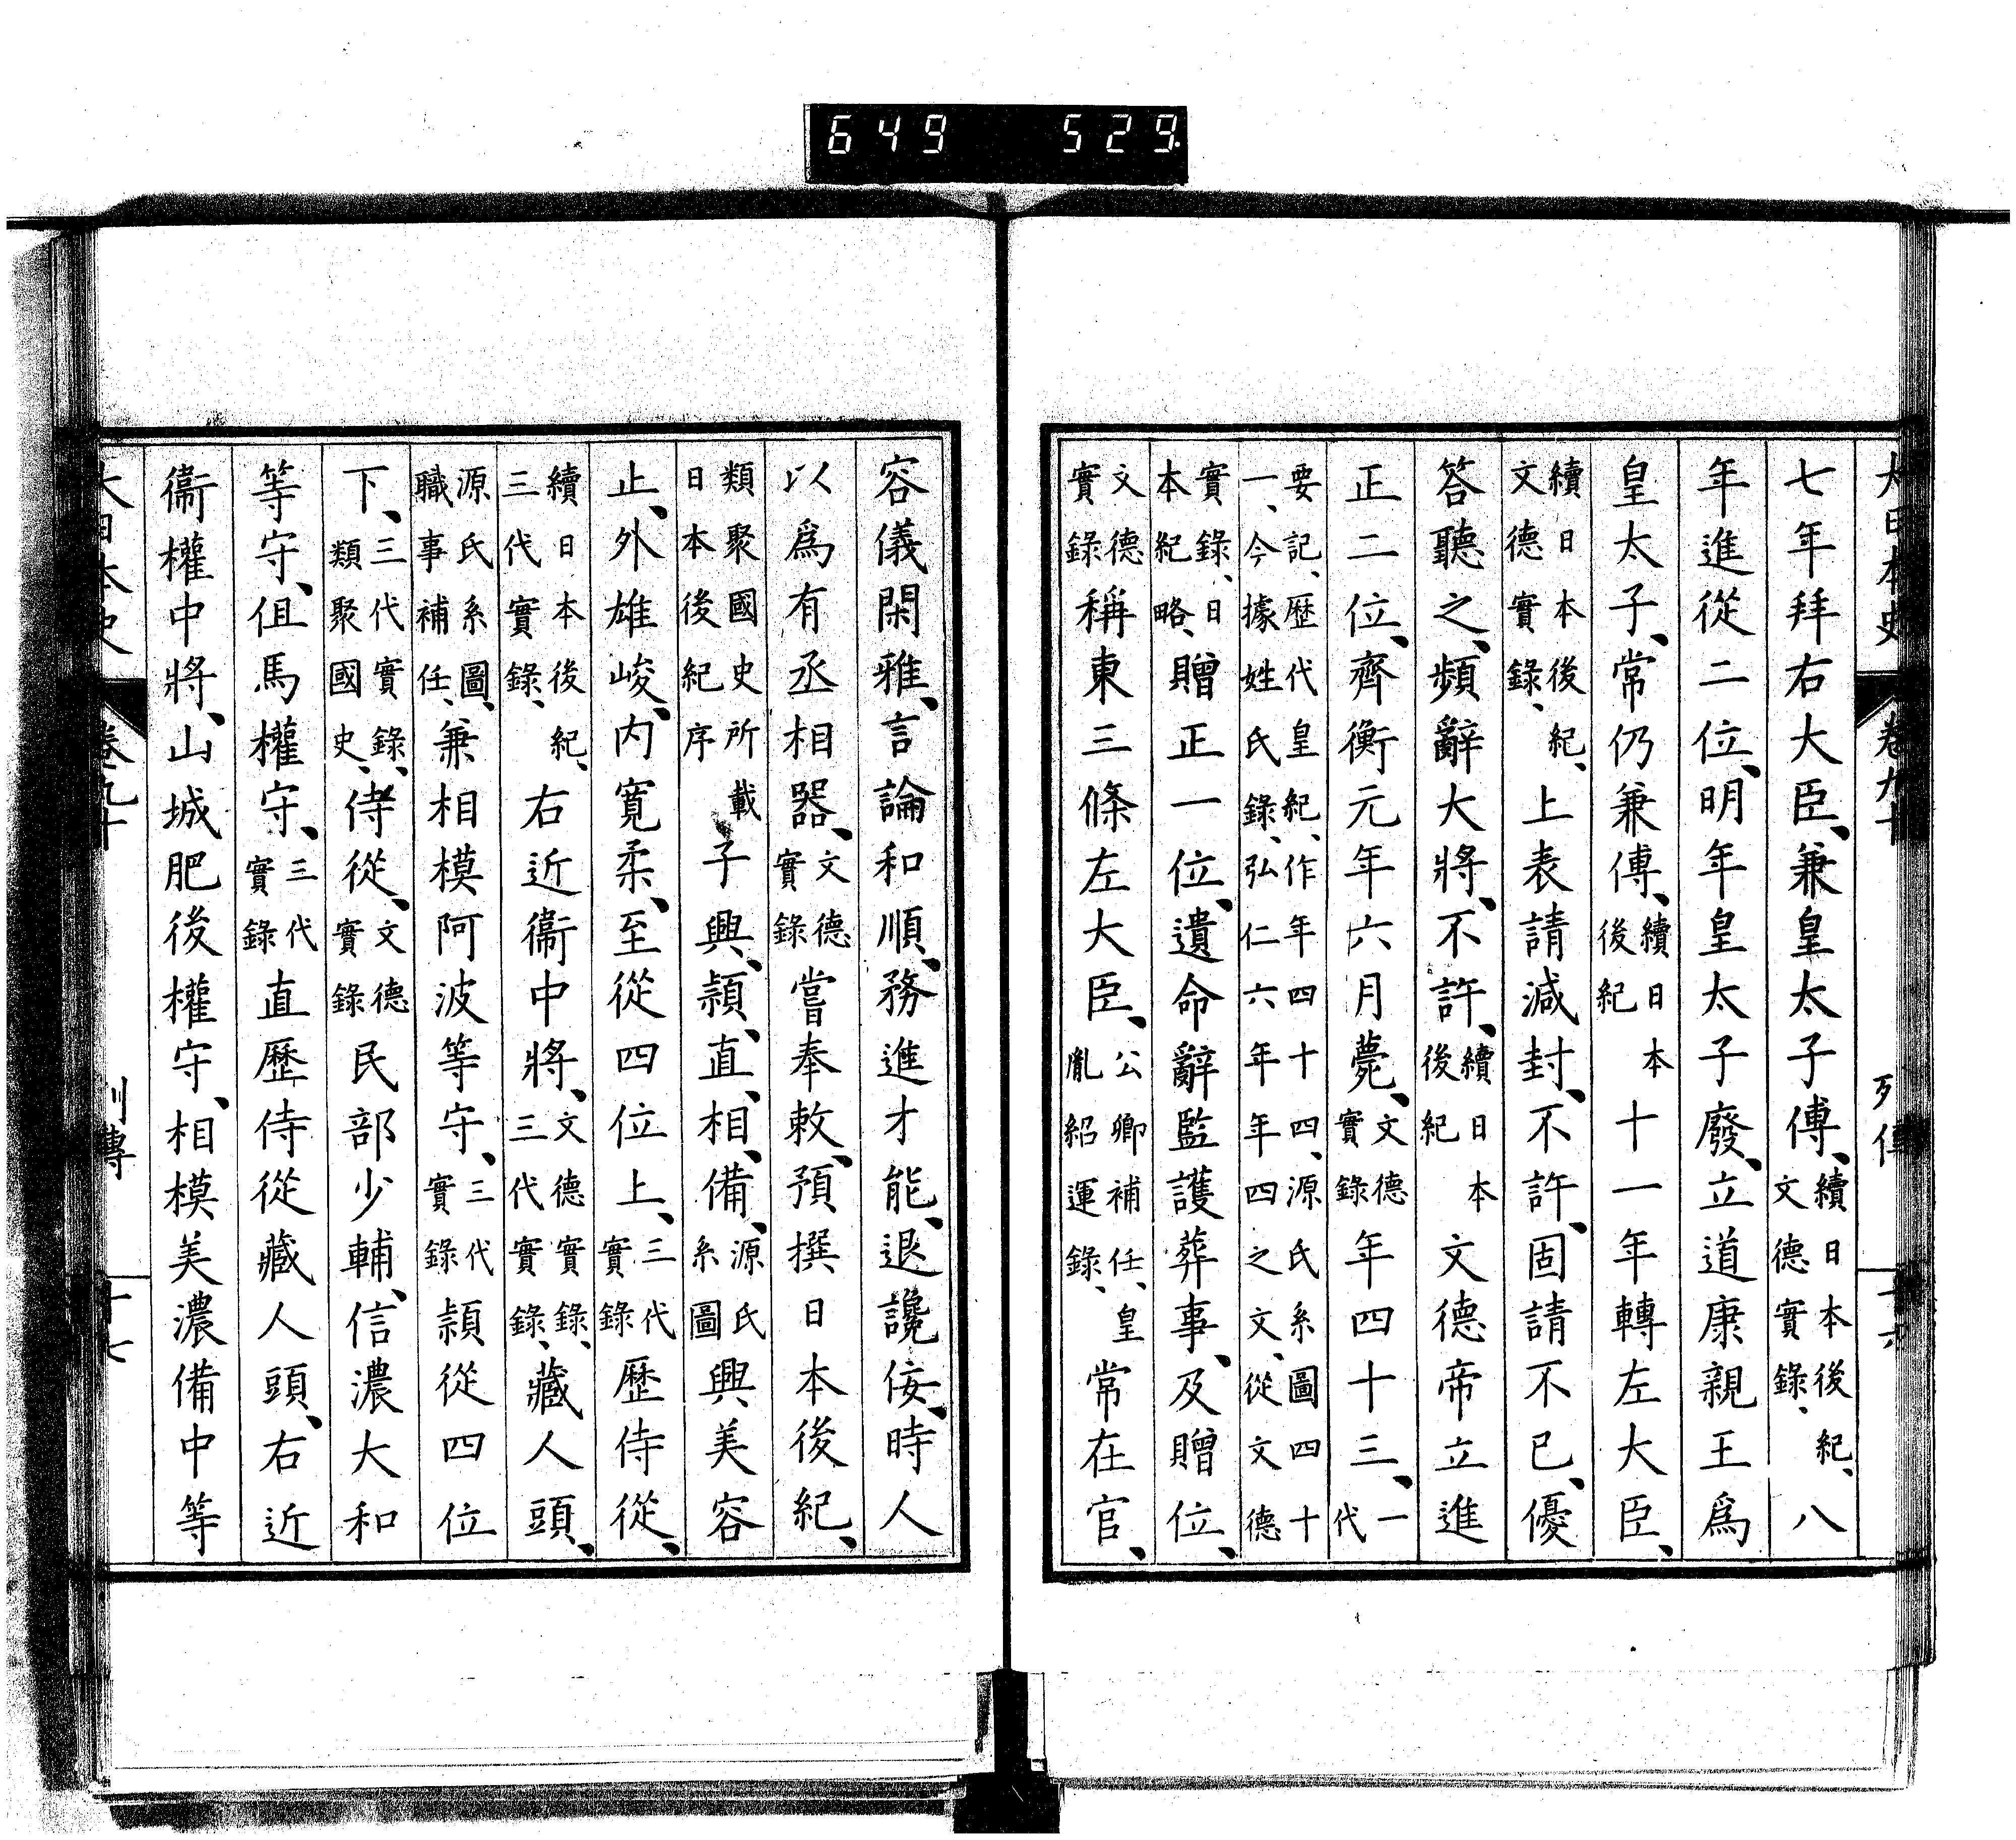 649 529
大日本史 卷九十 列傳 十六
七年拜右大臣、兼皇太子傅、續日本後紀、文德實錄、八
年進從二位、明年皇太子廢、立道康親王爲
皇太子、常仍兼傅、續日本後紀十一年轉左大臣、
續日本後紀、文德實錄、上表請減封、不許、固請不已、優
答聽之、頻辭大將、不許、續日本後紀文德帝立進
正二位、齊衡元年六月薨、文德實錄年四十三、一代
要記、歷代皇紀、作年四十四、源氏系圖四十一、今據姓氏錄、弘仁六年年四之文、從文德
實錄、日本紀略、贈正一位、遺命辭監護葬事、及贈位、
文德實錄稱東三條左大臣、公卿補任、皇胤紹運錄、常在官、
容儀閑雅、言論和順、務進才能、退讒佞、時人
以爲有丞相器、文德實錄嘗奉敕、預撰日本後紀、
類聚國史所載日本後紀序子興、頴、直、相、備、源氏系圖興美容
止、外雄峻、内寬柔、至從四位上、三代實錄歷侍從、
續日本後紀、三代實錄、右近衞中將、文德實錄、三代實錄、藏人頭、
源氏系圖、職事補任、兼相模阿波等守、三代實錄頴從四位
下、三代實錄、類聚國史、侍從、文德實錄民部少輔、信濃大和
等守、伹馬權守、三代實錄直歷侍從藏人頭、右近
衞權中將、山城肥後權守、相模美濃備中等
大日本史 卷九十 列傳 十七